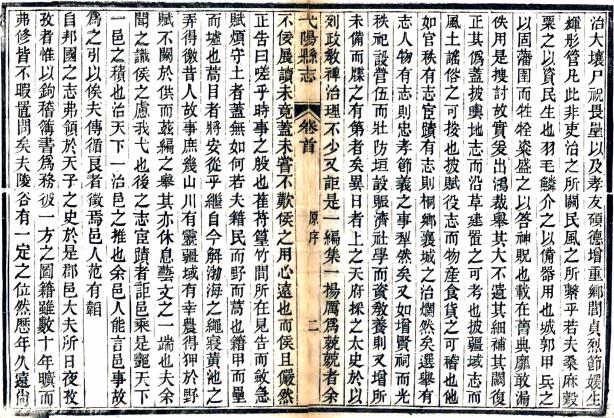 治大壞尸祝畏壘以及孝友碩德增重鄉閭貞烈節媛生
輝彤管凡此非吏治之所關民風之所繫乎若夫桑麻穀
粟之以資民生也羽毛鱗介之以備器用也城郭甲兵之
以固藩圉而牲牷粢盛之以答神貺也載在舊典靡敢漏
佚用是搜討故實爰出鴻裁舉其大不遺其細補其闕復
正其僞蓋披輿地志而沿革建置之可考也披疆域志而
風土謠俗之可按也披賦役志而物產食貨之可稽也他
如官秩有志宦蹟有志則桐鄉襄城之治爛然矣選舉有
志人物有志則忠孝節義之事犁然矣又如增賢祠而光
秩祀設營伍而壯防垣設賑濟社學而資敎養則又增所
未備而牒之有第者矣異日者上之天府採之太史於以
列政敎禆治理不少又詎是一編集一揚厲爲兢兢者余
弋陽縣志
卷首
原序
二
不佞展讀未竟蓋未嘗不歎侯之用心遠也而侯且儼然
正告曰嗟乎時事之殷也萑苻篁竹間所在見告而敏急
賦煩守土者蓋無如何若夫籍民而野而萬也籍甲而壘
而墟也蒿目者將安從乎繼自今解渤海之繩寢黃池之
弄得徵昔人故事庶幾山川有靈疆域有幸農得狎於野
賦不關於供而茲編之舉其亦休息藝文之一端也夫余
聞之識侯之慮我弋也後之志宦蹟者詎邑乘是艷天下
一邑之積也治天下一治邑之推也余邑人能言邑事故
爲之引以俟夫傳循良者徵焉邑人范有韜
自邦國之志弗領於天子之史於是郡邑大夫所日夜孜
孜者惟以鉤稽簿書爲務彼一方之圖籍雖數十年曠而
弗修皆不暇置問矣夫陵谷有一定之位然歷年久遠尙